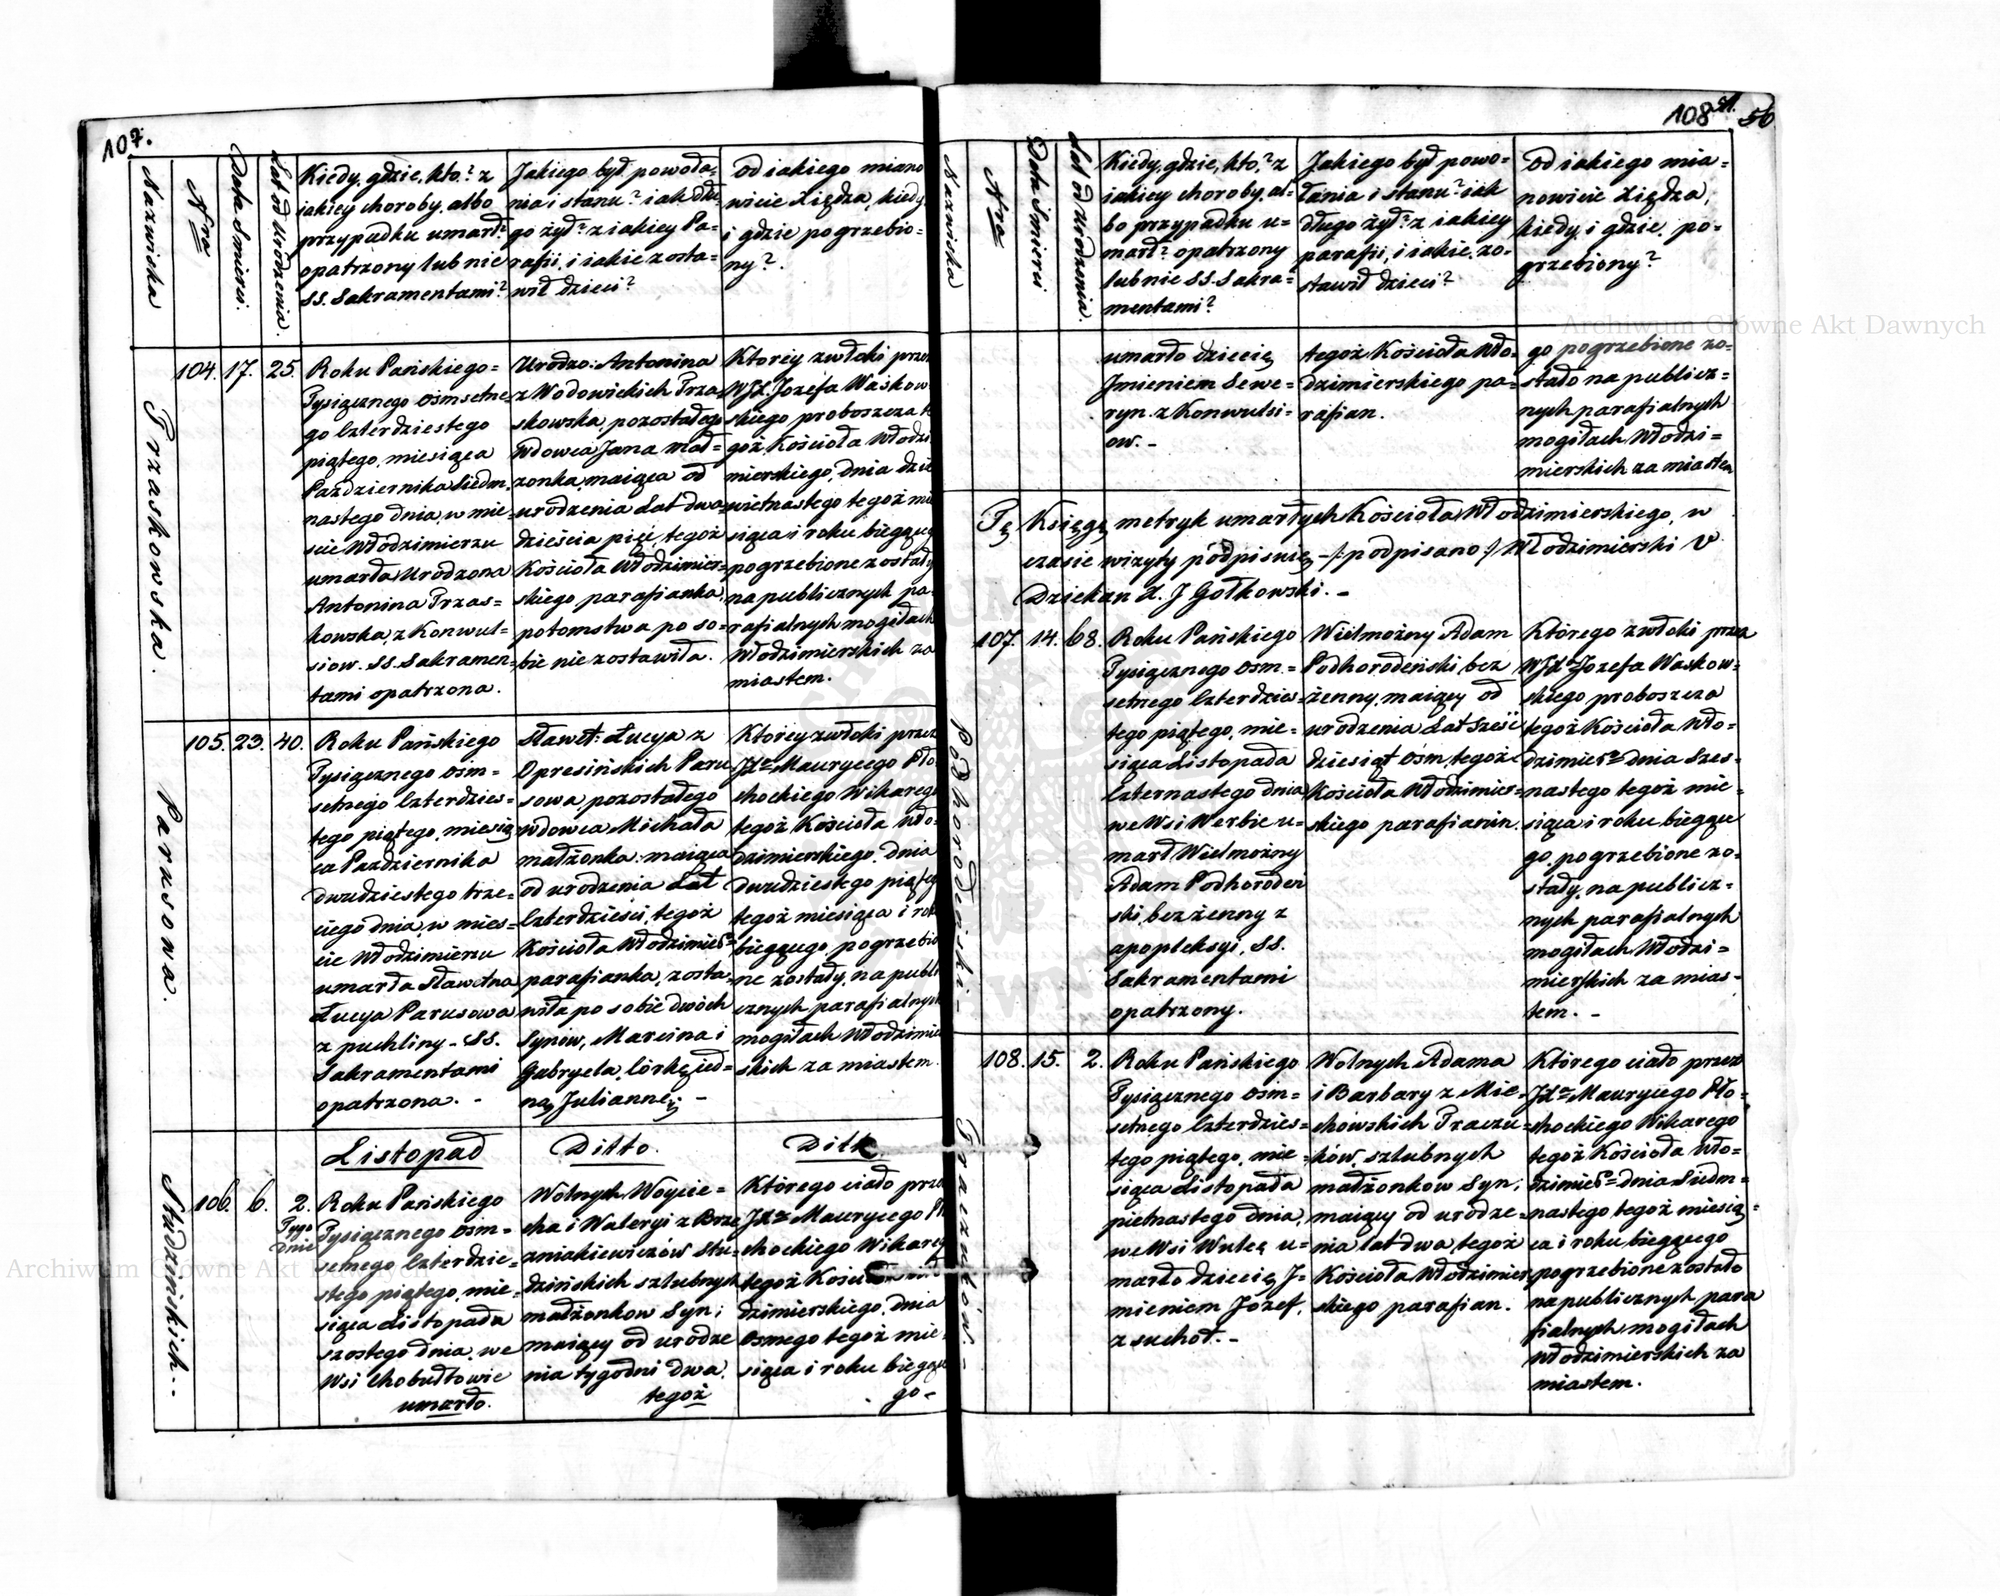 107.
Nazwiska
Nro
Data Smierci.
Lat od Urodzenia.
Kiedy, gdzie, kto? z
iakiey choroby, albo
przypadku umarł?
opatrzony lub nie
SS. Sakramentami?
Jakiego był powoła=
nia i stanu? iak dłu=
go żył? z iakiey Pa=
rafii, i iakie zosta=
wił dzieci?
Od iakiego miano
wicie Xiędza, kiedy
i gdzie pogrzebio=
ny?.
Przaskowska.
104. 17. 25.
Roku Pańskiego=
Tysiącznego Ośmsetne=
go Czterdziestego
piątego, miesiąca
Października Siedm
nastego dnia, w mie=
scie Włodzimierzu
umarła Urodzona
Antonina Przas=
kowska, z Konwul=
siow. SS. Sakramen=
tami opatrzona.
Urodzo: Antonina
z Wodowickich Prza
skowska, pozostałego
Wdowca Jana Mał=
żonka, maiąca od
urodzenia Lat dwa=
dzieścia pięć, tegoż
Kościoła Włodzimier=
skiego parafianka,
potomstwa po so=
bie nie zostawiła.
Ktorey zwłoki przez
WJX. Jozefa Waskow
skiego proboszcza te
goż Kościoła Włodzi
mierskiego, dnia dzie
wietnastego tegoż mie
siąca i roku bieżące
pogrzebione zostały
na publicznych pa=
rafialnych mogiłach
Włodzimierskich za
miastem.
Parusowa.
105. 23. 40.
Roku Pańskiego
Tysiącznego Ośm=
setnego Czterdzies=
tego piątego, miesią
ca Października
Dwudziestego trze=
ciego dnia, w mies=
cie Włodzimierzu
umarła Sławetna
Łucya Parusowa
z puchliny - SS.
Sakramentami
opatrzona. -
Sławet: Łucya z
Opresińskich Paru
sowa, pozostałego
wdowca Michała
małżonka maiąca
od urodzenia Lat
Czterdzieści, tegoż
Kościoła Włodzimier=
parafianka, zosta=
wiła po sobie dwóch
Synów, Marcina i
Gabryela, Córkę jed=
ną Juliannę; -
Ktorey zwłoki przez
JX. Maurycego Pło
chockiego Wikarego
tegoż Kościoła Wło=
dzimierskiego, dnia
Dwudziestego piątego
tegoż miesiąca i roku
bieżącego, pogrzebio
ne zostały, na publi
cznych parafialnych
mogiłach Włodzimier
skich za miastem.
Listopad Ditto. Ditt
Studzińskich..
106. 6. 2.
Tygo
dnie
Roku Pańskiego
Tysiącznego Ośm=
setnego Czterdzie=
stego piątego, mie=
siąca Listopada
szostego dnia, we
Wsi Chobułtowie
umarło.
Wolnych Woycie=
cha i Waleryi z Brze
zniakiewiczów Stu=
dzińskich szlubnych
małżonkow Syn;
maiący od urodze
nia tygodni dwa,
tegoż
Którego ciało przez
JX. Maurycego Pło
chockiego Wikarego
tegoż Kościoła Wło
dzimierskiego, dnia
Osmego tegoż mie=
siąca i roku bieżące
go-
108 56
Nazwiska
Nro
Data Smierci
Lat od Urodzenia.
Kiedy, gdzie, kto? z
iakiey choroby, al=
bo przypadku u=
marł? opatrzony
lub nie SS. Sakra=
mentami?
Jakiego był powo=
łania i stanu? iak
długo żył? z iakiey
parafii, i iakie zo=
stawił dzieci?
Od iakiego mia=
nowicie Xiędza,
kiedy, i gdzie, po=
grzebiony?
umarło dziecię
Jmieniem Sewe=
ryn. z Konwulsi=
ow. -
tegoż Kościoła Wło=
dzimierskiego pa=
rafian.
go pogrzebione zo=
stało na publicz=
nych parafialnych
mogiłach Włodzi=
mierskich za miastem
Tę Księgę metryk umarłych Kościoła Włodzimierskiego, w
czasie wizyty podpisuię -/: podpisano :/ Włodzimierski V
Dziekan X. J Gołkowski. -
Podhorodeński -
107. 14. 68.
Roku Pańskiego
Tysiącznego Osm=
setnego Czterdzies=
tego piątego, mie=
siąca Listopada
Czternastego dnia
we Wsi Werbie u=
marł Wielmożny
Adam Podhorodeń
ski, bezżenny z
apopleksyi, SS.
Sakramentami
opatrzony.
Wielmożny Adam
Podhorodeński, bez
żenny, maiący od
urodzenia Lat Sześć
dziesiąt Ośm, tegoż
Kościoła Włodzimier=
skiego parafianin.
Którego zwłoki przez
WJX Jozefa Waskow=
skiego proboszcza
tegoż Kościoła Wło=
dzimier= dnia Szes=
nastego tegoż mie=
siąca i roku bieżące
go, pogrzebione zo=
stały, na publicz=
nych parafialnych
mogiłach Włodzi=
mierskich za mias=
tem. -
Praczuków. -
108. 15. 2.
Roku Pańskiego
Tysiącznego Ośm=
setnego Czterdzies=
tego piątego, mie=
siąca Listopada
pietnastego dnia,
we Wsi Wulcę u=
marło dziecię J=
mieniem Józef,
z suchot. -
Wolnych Adama
i Barbary z Mie=
chowskich Praczu=
ków, szlubnych
małżonkow Syn;
maiący od urodze=
nia lat dwa, tegoż
Kościoła Włodzimier
skiego parafian.
Którego ciało przez
JX. Maurycego Pło=
chockiego Wikarego
tegoż Kościoła Wło=
dzimier= dnia Siedm=
nastego tegoż miesią=
ca i roku bieżącego
pogrzebione zostało
na publicznych para
fialnych mogiłach
Włodzimierskich za
miastem.
Archiwum Główne Akt Dawnych
Archiwum Główne Akt Dawnych